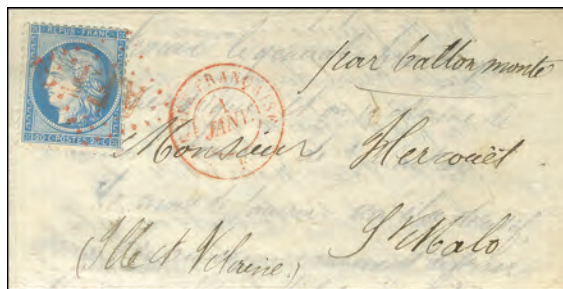 REPUB·FRANC·
20 C·POSTES·20 C
FRANÇAISE
JANV.
par ballon monté
Monsieur Hercouët
St Malo
(Ille et Vilaine.)